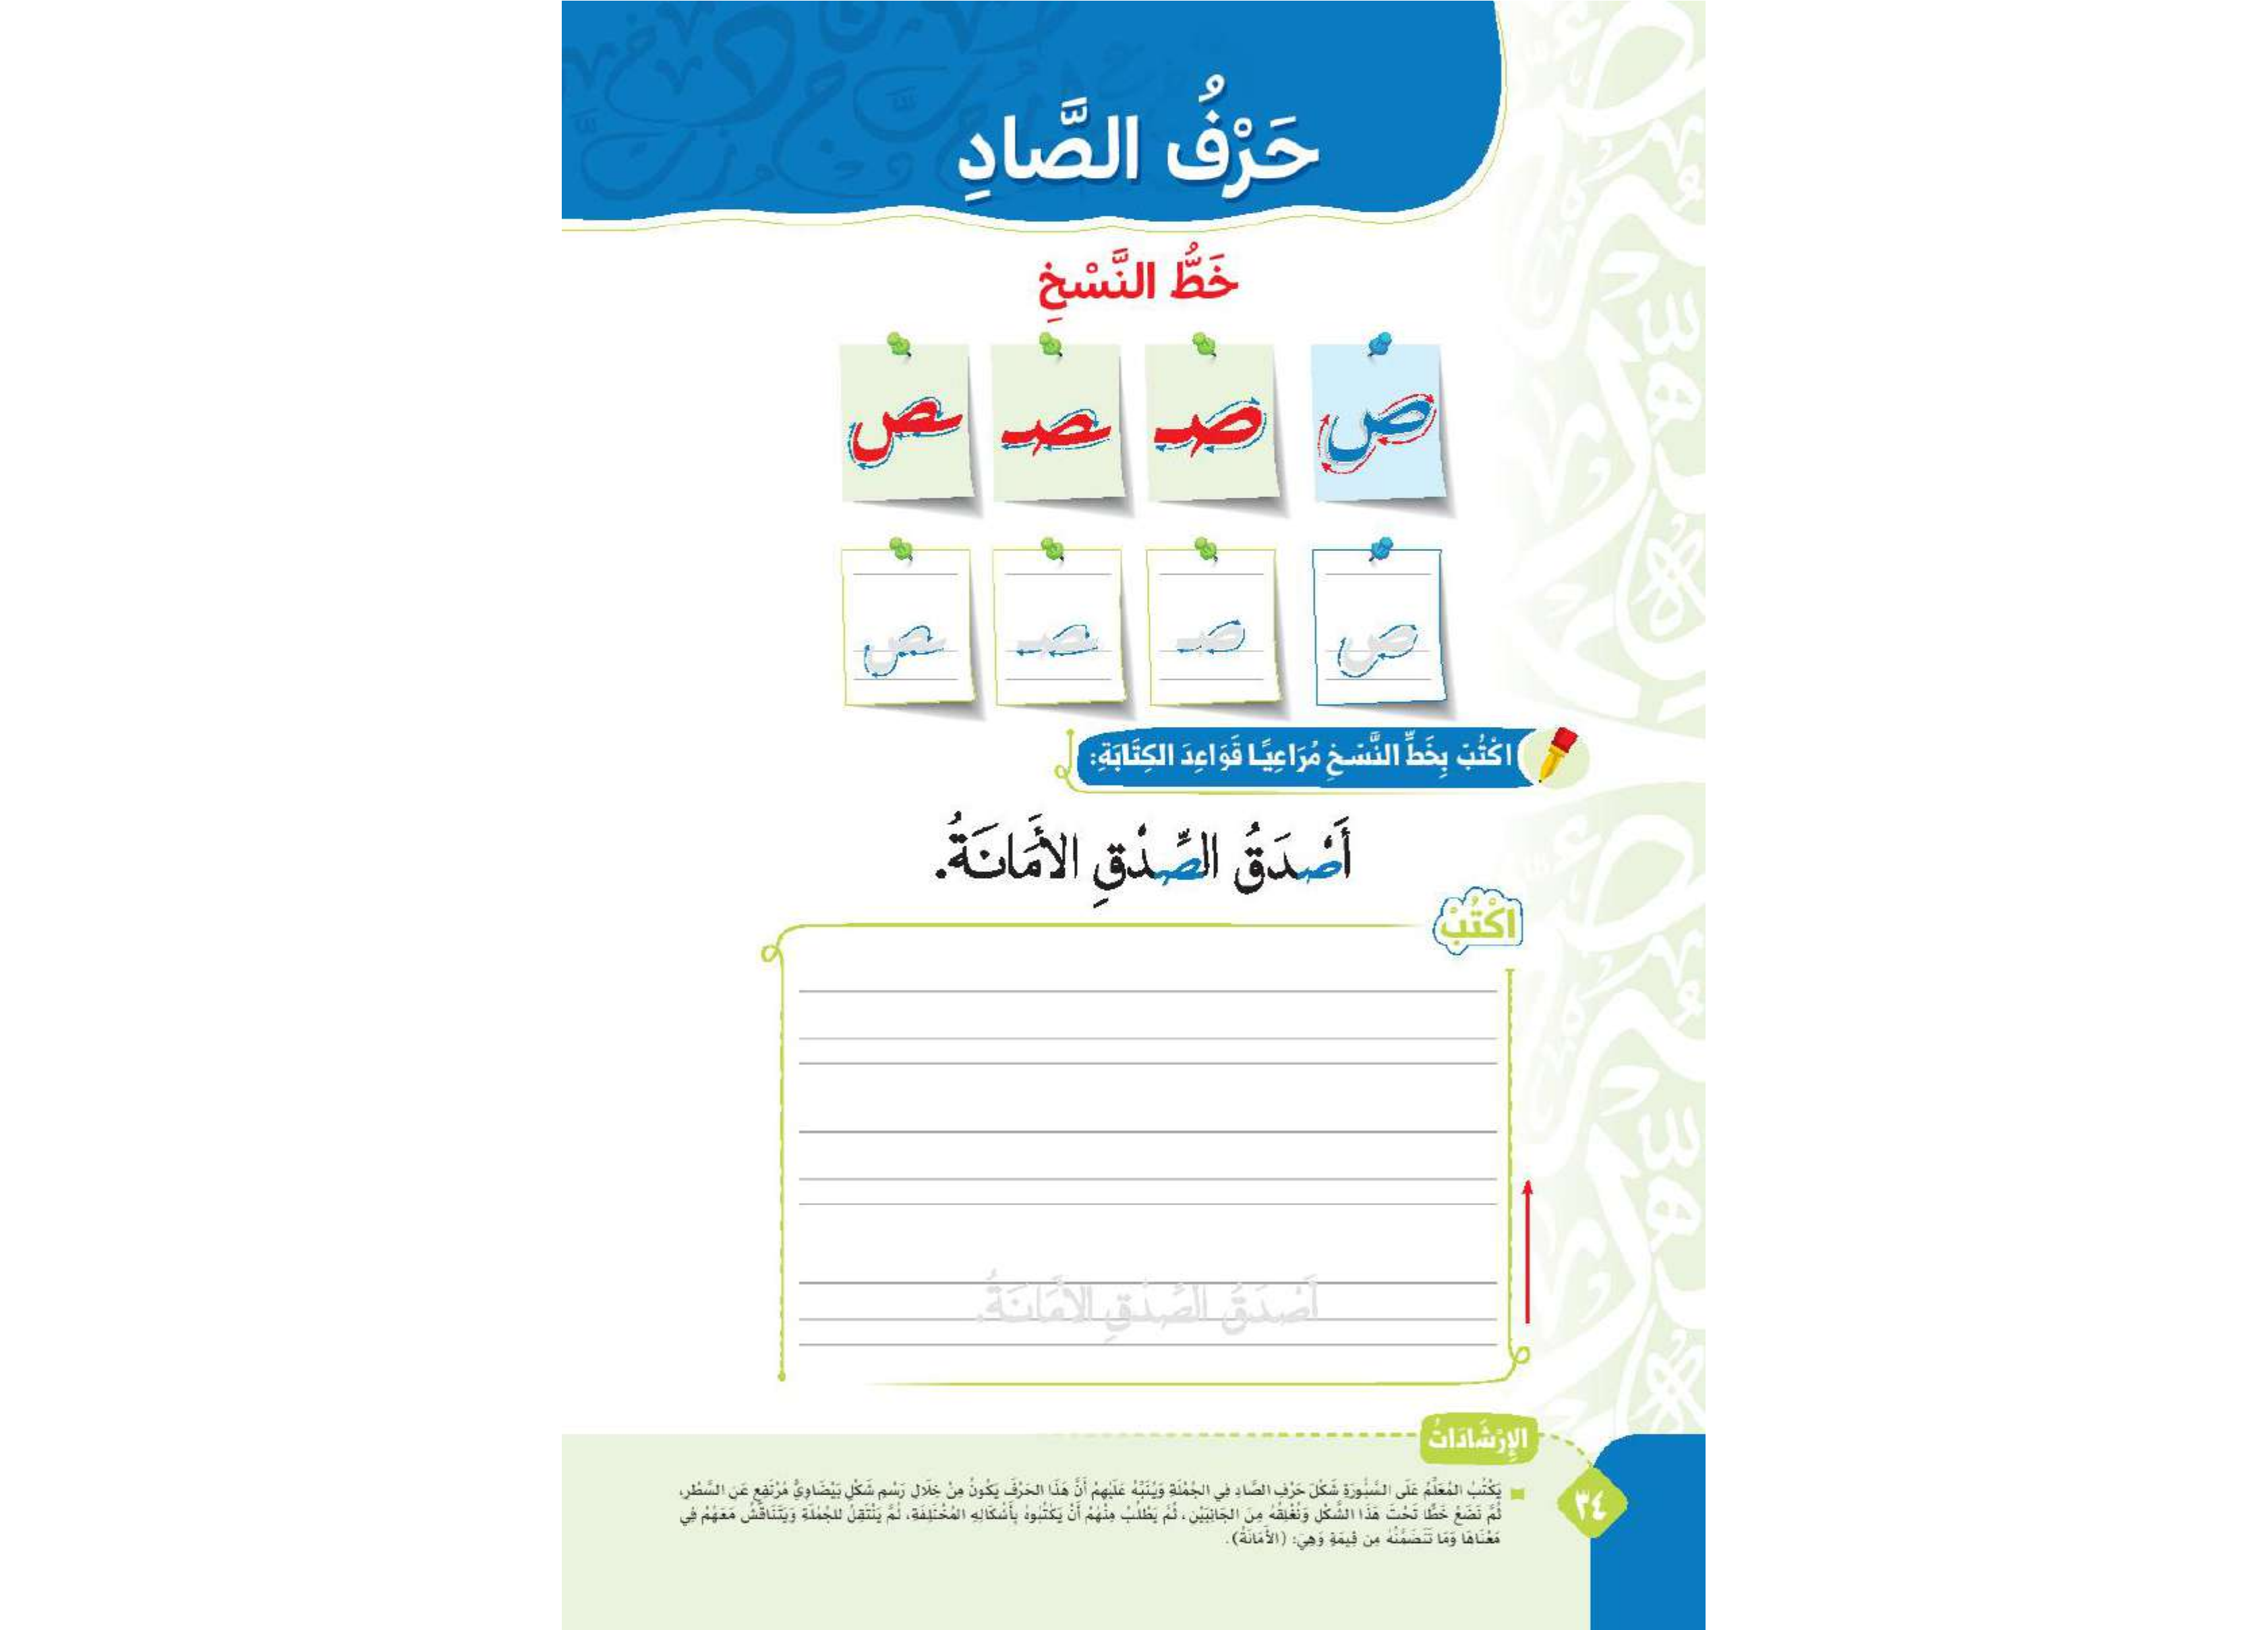 حَرْفُ الصَّادِ
خَطُّ النَّسْخِ
ص صـ ـصـ ـص
ص صـ ـصـ ـص
اكْتُبْ بِخَطِّ النَّسْخِ مُرَاعِيًا قَوَاعِدَ الكِتَابَةِ:
أَصْدَقُ الصِّدْقِ الأَمَانَةُ.
اكْتُبْ
أَصْدَقُ الصِّدْقِ الأَمَانَةُ.
الإِرْشَادَاتُ
يَكْتُبُ المُعَلِّمُ عَلَى السَّبُّورَةِ شَكْلَ حَرْفِ الصَّادِ فِي الجُمْلَةِ وَيُنَبِّهُ عَلَيْهِمْ أَنَّ هَذَا الحَرْفَ يَكُونُ مِنْ خِلَالِ رَسْمِ شَكْلٍ بَيْضَاوِيٍّ مُرْتَفِعٍ عَنِ السَّطْرِ،
ثُمَّ نَضَعُ خَطًّا تَحْتَ هَذَا الشَّكْلِ وَنُغْلِقُهُ مِنَ الجَانِبَيْنِ، ثُمَّ يَطْلُبُ مِنْهُمْ أَنْ يَكْتُبُوهُ بِأَشْكَالِهِ المُخْتَلِفَةِ، ثُمَّ يَنْتَقِلُ للجُمْلَةِ وَيَتَنَاقَشُ مَعَهُمْ فِي
مَعْنَاهَا وَمَا تَتَضَمَّنُهُ مِن قِيمَةٍ وَهِيَ: (الأَمَانَةُ).
٣٤